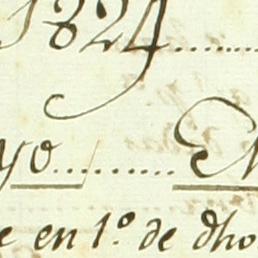 1824
yo
e en 1º de dho